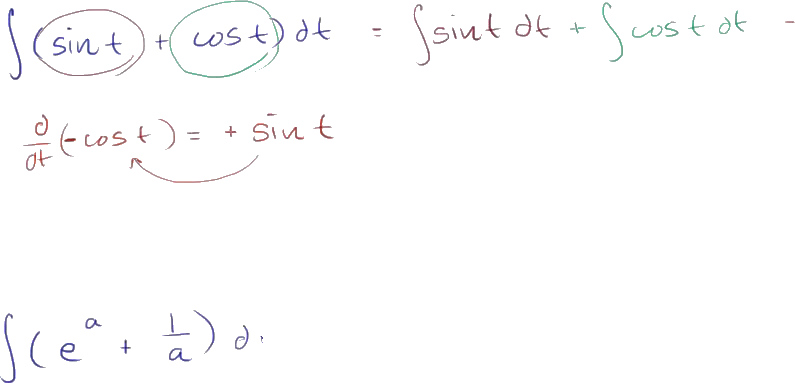 ∫(sin t + cos t) dt = ∫sin t dt + ∫cos t dt -
d/dt (-cos t) = + sin t
∫(e^a + 1/a) d